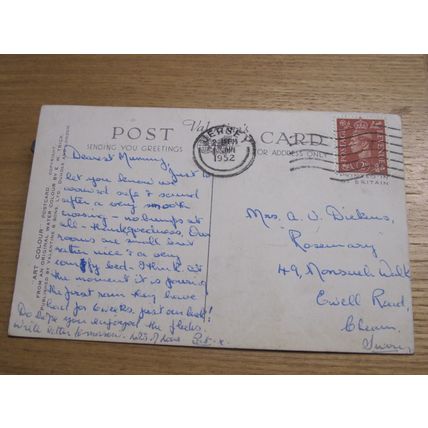 Valentine's
POST CARD
SENDING YOU GREETINGS
FOR ADDRESS ONLY
JERSEY
1952
PRINTED IN
BRITAIN
ART COLOUR POSTCARD. COPYRIGHT.
FROM AN ORIGINAL WATER COLOUR BY E. W. TRICK
PUBLISHED BY VALENTINE & SONS LTD. DUNDEE AND LONDON
Dearest Mummy, Just to
let you know we
arrived safe & sound
after a very smooth
crossing - no bumps at
all - thank goodness. Our
rooms are small but
rather nice & a very
comfy bed - I think at
the moment it is pouring
the first rain they have
had for 6 weeks. just our luck!
Do hope you enjoyed the
Write letter tomorrow. love
Mrs. A. V. Dickens,
Rosemary
49, Nonsuch Walk
Ewell Road,
Cheam,
Surrey